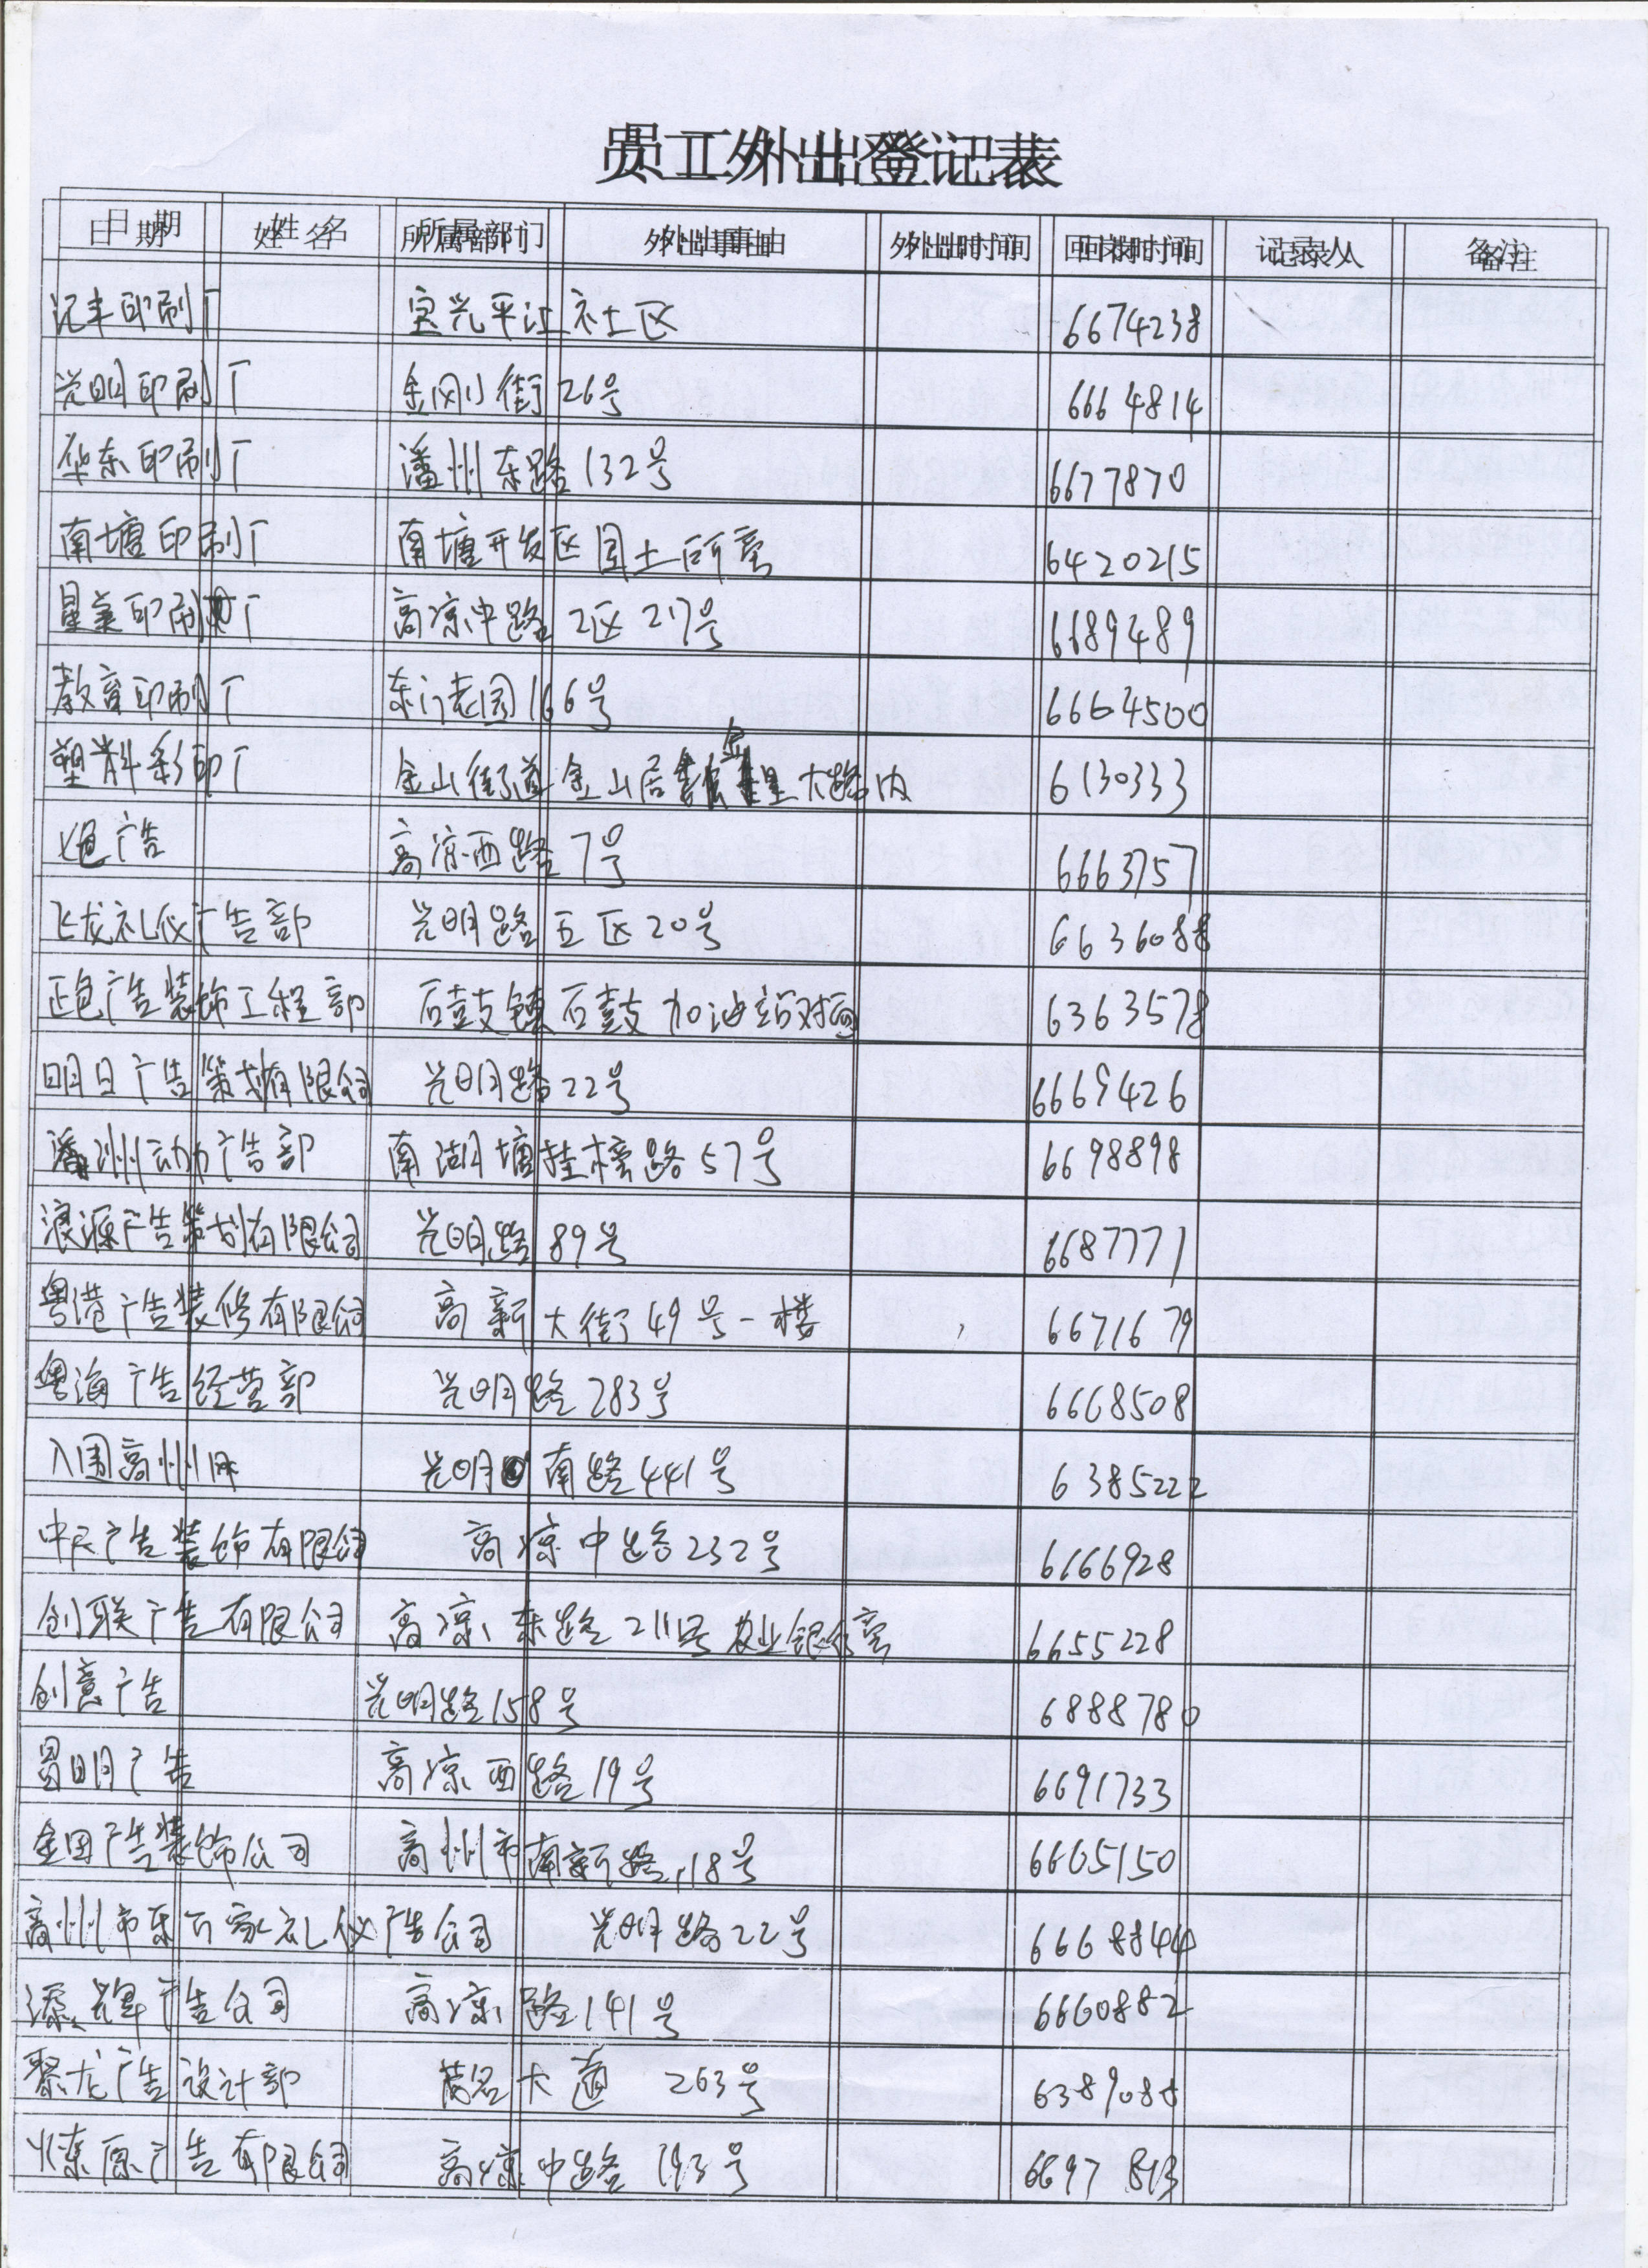 员工外出登记表
日期 姓名 所属部门 外出事由 外出时间 回岗时间 记录人 备注
记丰印刷厂 宝光平江社区 6674238
光明印刷厂 金刚街26号 6664814
华东印刷厂 潘州东路132号 6677870
南塘印刷厂 南塘开发区国土所旁 6420215
星美印刷厂 高凉中路2区217号 6689489
教育印刷厂 东门花园166号 6664500
塑料彩印厂 金山街道金山居 大路内 6130333
七色广告 高凉西路7号 6663757
飞龙礼仪广告部 光明路五区20号 6636088
正色广告装饰工程部 石鼓镇石鼓加油站对面 6363578
明日广告策划有限公司 光明路22号 6669426
潘州动力广告部 南湖塘挂榜路57号 6698898
浪源广告策划有限公司 光明路89号 6687771
粤港广告装修有限公司 高新大街49号一楼 6671679
粤海广告经营部 光明路283号 6668508
入围高州网 光明南路441号 6385222
中天广告装饰有限公司 高凉中路232号 6666928
创联广告有限公司 高凉东路211号农业银行旁 6655228
创意广告 光明路158号 6888780
昌明广告 高凉西路19号 6691733
金田广告装饰公司 高州市南新路118号 6665150
高州市东方家礼仪广告公司 光明路22号 6668844
添辉广告公司 高凉路141号 6660882
聚龙广告设计部 茂名大道 263号 6389088
火东原广告有限公司 高凉中路193号 6697813